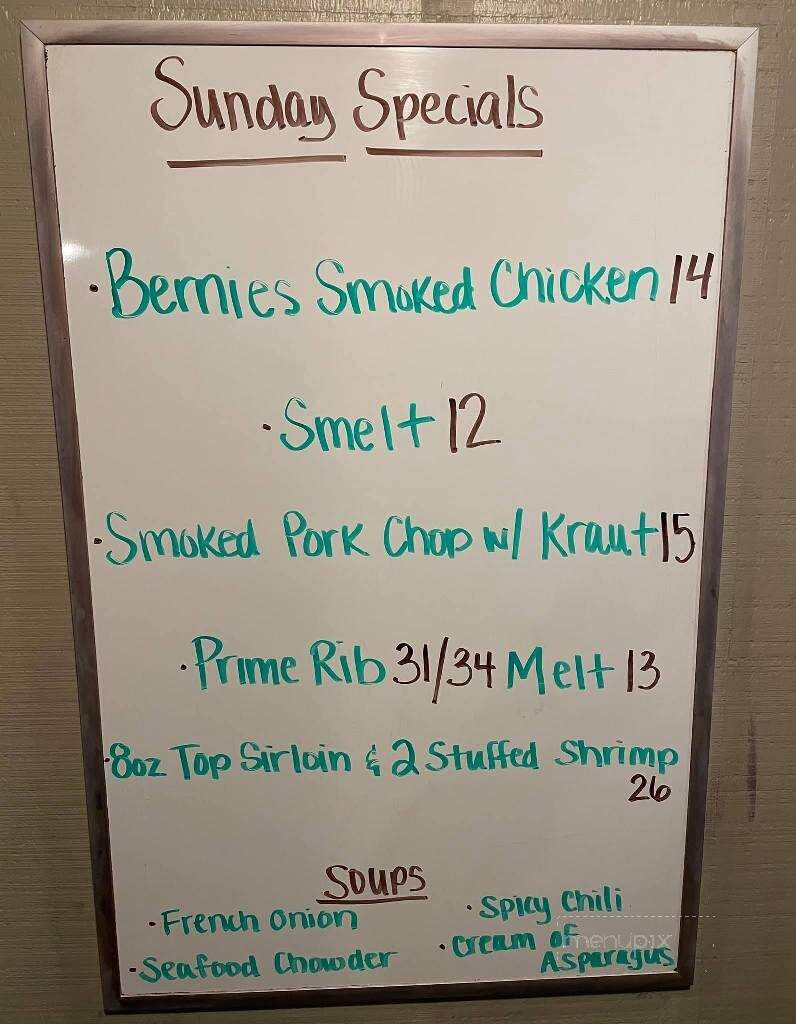 Sunday Specials
• Bernies Smoked Chicken 14
• Smelt 12
• Smoked Pork Chop w/ Kraut 15
• Prime Rib 31/34 Melt 13
• 8oz Top Sirloin & 2 Stuffed Shrimp
26
Soups
• French Onion
• Seafood Chowder
• Spicy Chili
• Cream of
Asparagus
menupix